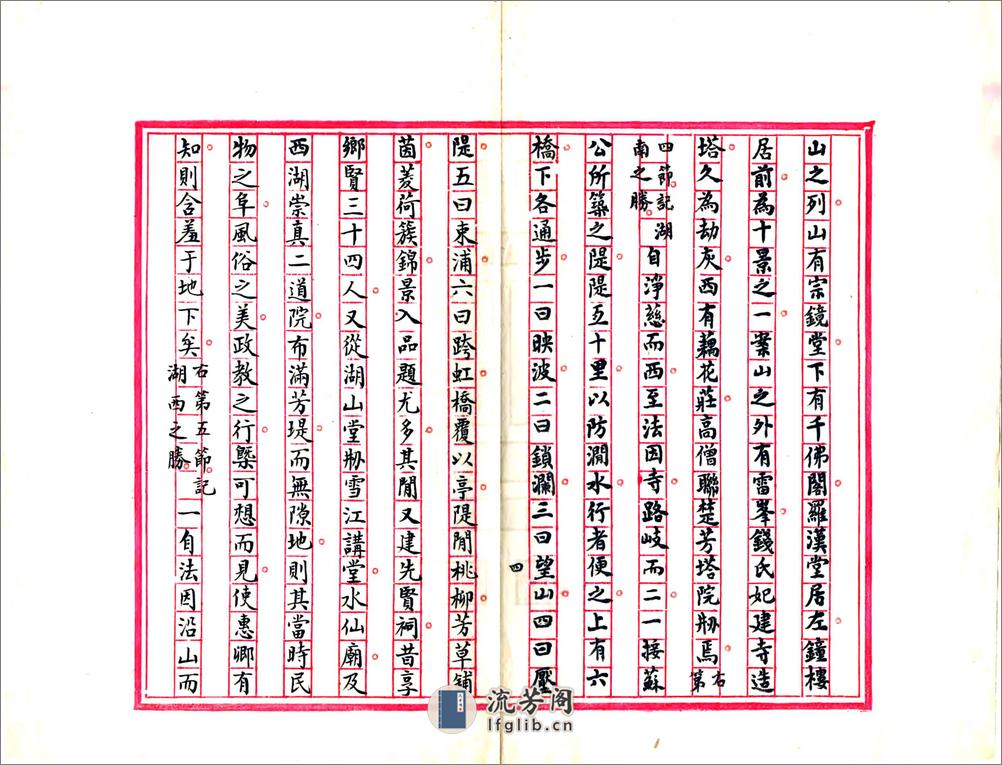 山之列山有宗鏡堂下有千佛閣羅漢堂居左鐘樓
居前為十景之一案山之外有雷峯錢氏妃建寺造
塔久為劫灰西有藕花莊高僧聯楚芳塔院刱焉右第
四節記湖南之勝自淨慈而西至法因寺路岐而二一接蘇
公所築之隄隄五十里以防澗水行者便之上有六
橋下各通步一曰映波二曰鎖瀾三曰望山四曰壓
四
隄五曰東浦六曰跨虹橋覆以亭隄閒桃柳芳草鋪
茵菱荷簇錦景入品題尤多其閒又建先賢祠昔享
鄉賢三十四人又從湖山堂刱雪江講堂水仙廟及
西湖崇真二道院布滿芳堤而無隙地則其當時民
物之阜風俗之美政教之行槩可想而見使惠卿有
知則含羞于地下矣右第五節記湖西之勝一自法因沿山而
流芳阁
lfglib.cn